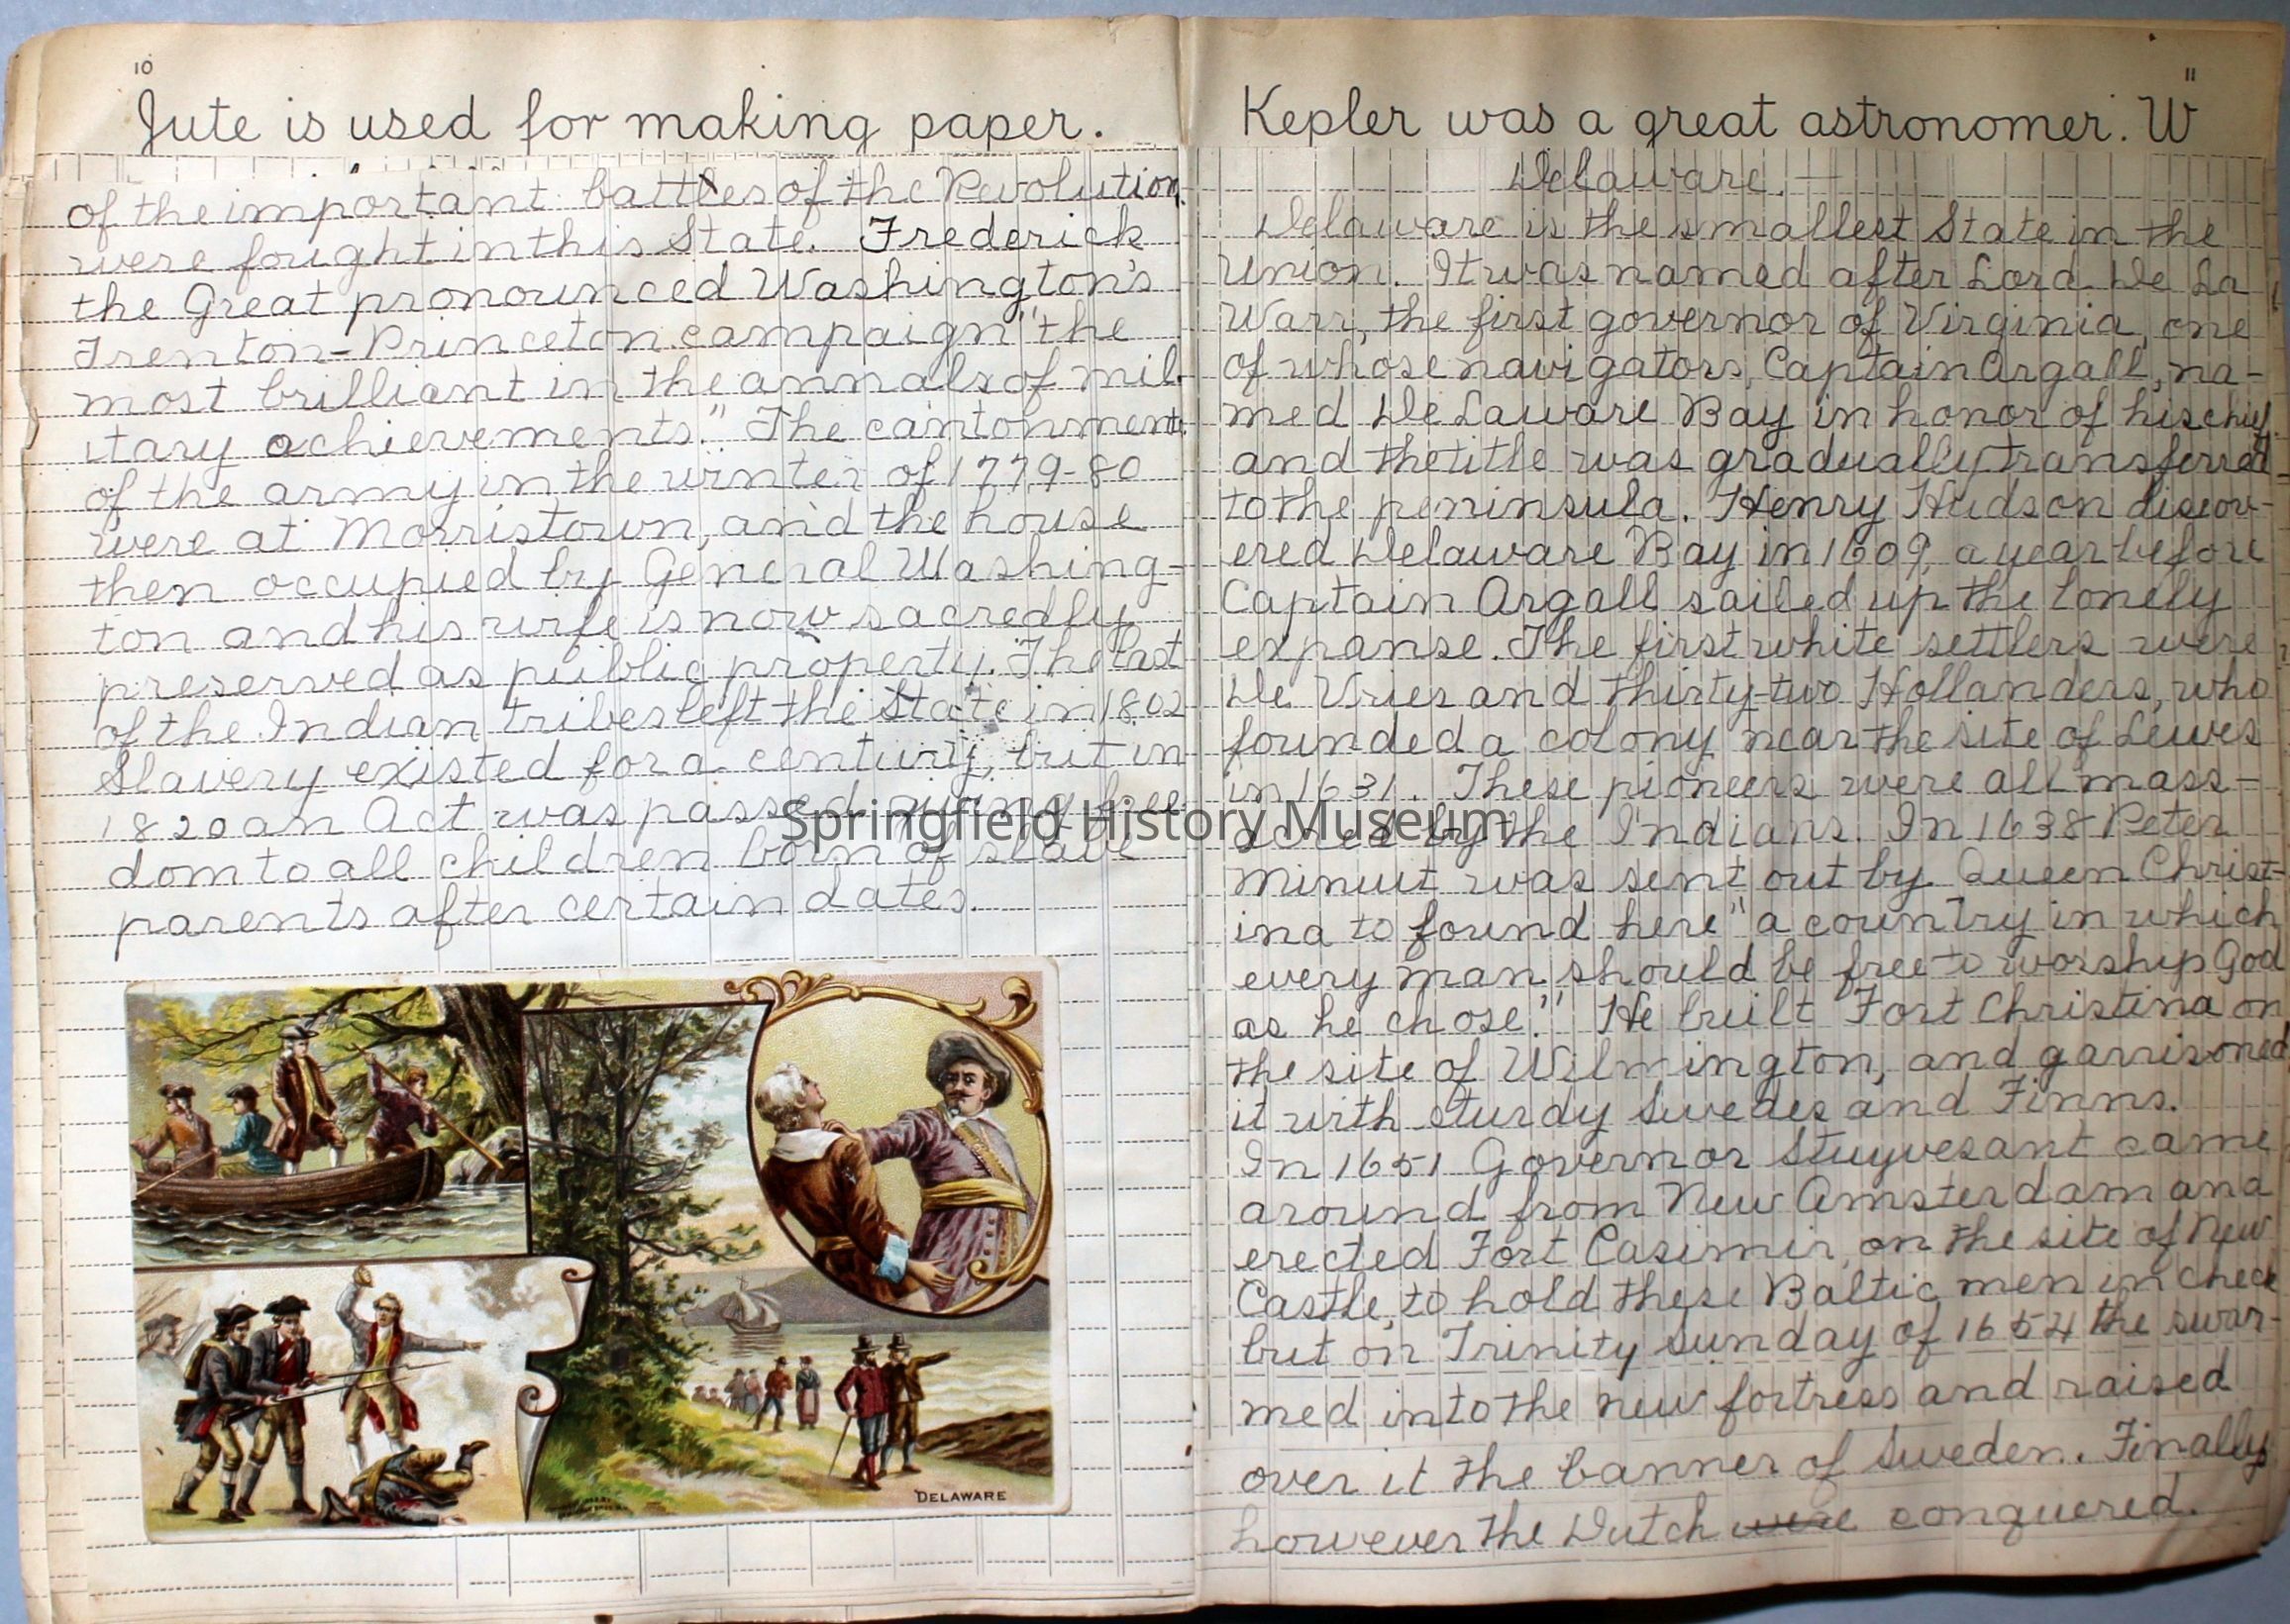 10
Jute is used for making paper.
of the important battles of the Revolution
were fought in this State. Frederick
the Great pronounced Washington's
Trenton-Princeton campaign "the
most brilliant in the annals of mil-
itary achievements." The cantonments
of the army in the winter of 1779-80
were at Morristown, and the house
then occupied by General Washing-
ton and his wife is now sacredly
preserved as public property. The last
of the Indian tribes left the State in 1802
Slavery existed for a century, but in
1820 an Act was passed giving free
dom to all children born of slave
parents after certain dates.
DELAWARE
11
Kepler was a great astronomer. W
Delaware.
Delaware is the smallest State in the
Union. It was named after Lord De La
Warr, the first governor of Virginia, one
of whose navigators, Captain Argall, na-
med De Laware Bay in honor of his chief
and the title was gradually transferred
to the peninsula. Henry Hudson discov-
ered Delaware Bay in 1609, a year before
Captain Argall sailed up the lonely
expanse. The first white settlers were
De Vries and thirty-two Hollanders, who
founded a colony near the site of Lewes
in 1631. These pioneers were all mass-
acred by the Indians. In 1638 Peter
Minuit was sent out by Queen Christ-
ina to found here "a country in which
every man should be free to worship God
as he chose." He built Fort Christina on
the site of Wilmington, and garrisoned
it with sturdy Swedes and Finns.
In 1651 Governor Stuyvesant came
around from New Amsterdam and
erected Fort Casimir, on the site of New
Castle, to hold these Baltic men in check
but on Trinity Sunday of 1654 the swar-
med into the new fortress and raised
over it the banner of Sweden. Finally
however the Dutch were conquered.
Springfield History Museum